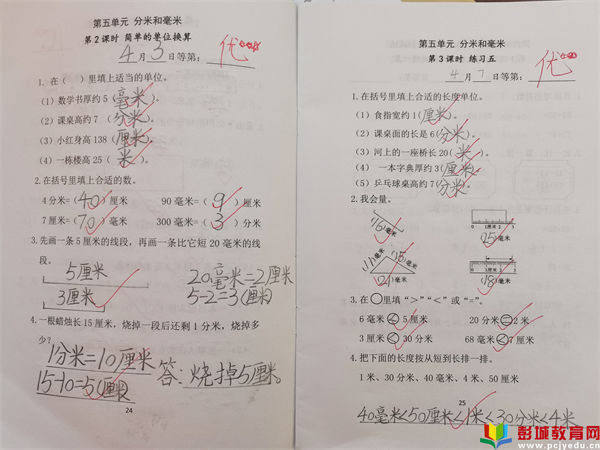 第五单元 分米和毫米
第2课时 简单的单位换算
4月3日等第: 优
1. 在（ ）里填上适当的单位。
（1）数学书厚约5（毫米）。
（2）课桌高约7（分米）。
（3）小红身高138（厘米）。
（4）一栋楼高25（米）。
2.在括号里填上合适的数。
4分米=（40）厘米 90毫米=（9）厘米
7厘米=（70）毫米 300毫米=（3）分米
3.先画一条5厘米的线段，再画一条比它短20毫米的线
段。
5厘米
3厘米
20毫米=2厘米
5-2=3（厘米）
4.一根蜡烛长15厘米，烧掉一段后还剩1分米，烧掉多
少？
1分米=10厘米
15-10=5（厘米）
答：烧掉5厘米。
24
第五单元 分米和毫米
第3课时 练习五
4月7日等第: 优
1.在括号里填上合适的长度单位。
（1）食指宽约1（厘米）。
（2）课桌面的长是6（分米）。
（3）河上的一座桥长20（米）。
（4）一本字典厚约3（厘米）。
（5）乒乓球桌高约7（分米）。
2.我会量。
（16）毫米
（25）毫米
（18）毫米
3.在○里填“>”“<”或“=”。
6毫米<5厘米 20分米=2米
3厘米<30分米 68毫米<7厘米
4.把下面的长度按从短到长排一排。
1米、30分米、40毫米、4米、50厘米
25
40毫米<50厘米<1米<30分米<4米
彭城教育网
www.pcjyedu.cn